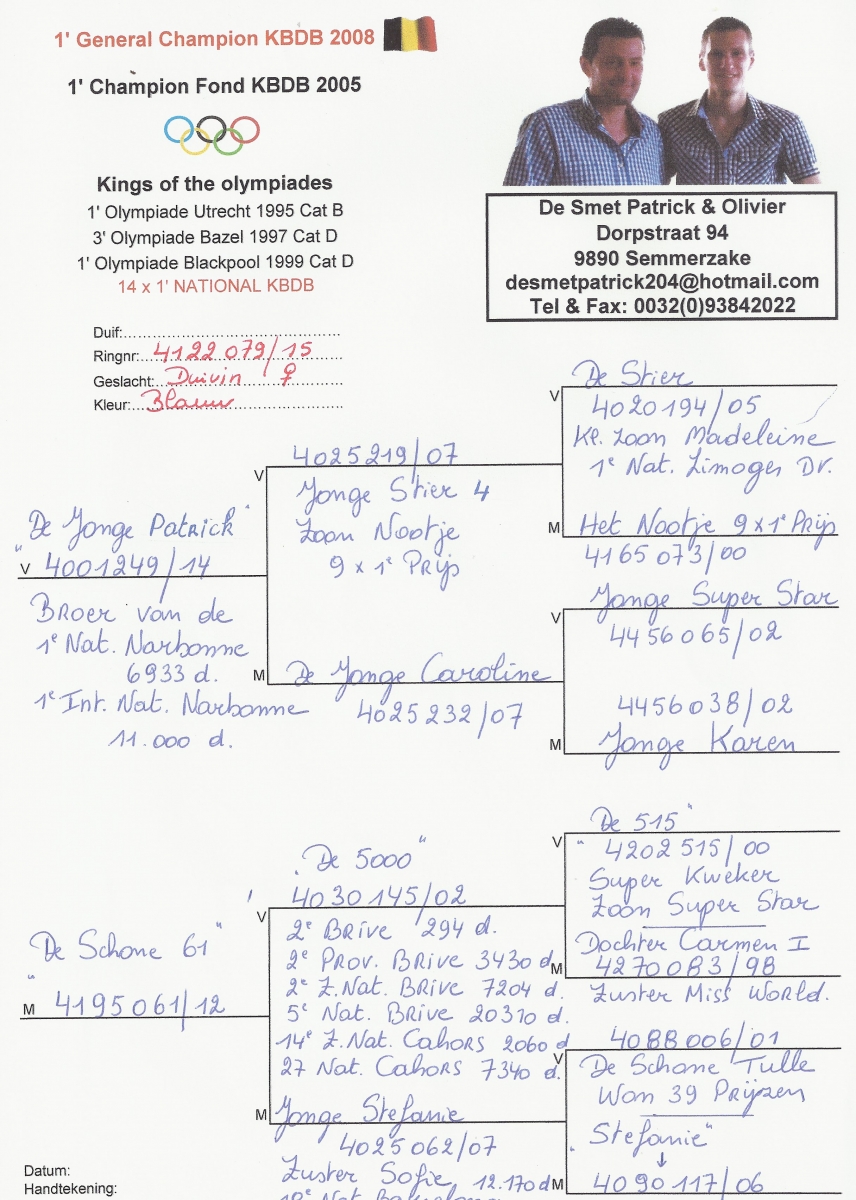 1' General Champion KBDB 2008
1' Champion Fond KBDB 2005
Kings of the olympiades
1' Olympiade Utrecht 1995 Cat B
3' Olympiade Bazel 1997 Cat D
1' Olympiade Blackpool 1999 Cat D
14 x 1' NATIONAL KBDB
De Smet Patrick & Olivier
Dorpstraat 94
9890 Semmerzake
desmetpatrick204@hotmail.com
Tel & Fax: 0032(0)93842022
Duif:
Ringnr: 4122079/15
Geslacht: Duivin ♀
Kleur: Blauw
"De Jonge Patrick"
V 4001249/14
Broer van de
1e Nat. Narbonne
6933 d.
1e Int. Nat. Narbonne
11.000 d.
V 4025219/07
Jonge Stier 4
Zoon Nootje
9 x 1e Prijs
M De Jonge Caroline
4025232/07
De Stier
V 4020194/05
Kl. Zoon Madeleine
1e Nat. Limoges Dr.
M Het Nootje 9 x 1e Prijs
4165073/00
Jonge Super Star
V 4456065/02
4456038/02
M Jonge Karen
"De Schone 61"
M 4195061/12
"De 5000"
V 4030145/02
2e Brive 294 d.
2e Prov. Brive 3430 d
2e Z.Nat. Brive 7204 d.
5e Nat. Brive 20310 d.
14e Z.Nat. Cahors 2060 d
27 Nat. Cahors 7340 d.
M Jonge Stefanie
4025062/07
Zuster Sofie 12.170 d
"De 515"
V 4202515/00
Super Kweker
Zoon Super Star
Dochter Carmen I
M 4270083/98
Zuster Miss World.
4088006/01
V De Schone Tulle
Won 39 Prijzen
"Stefanie"
M 4090117/06
Datum:
Handtekening: